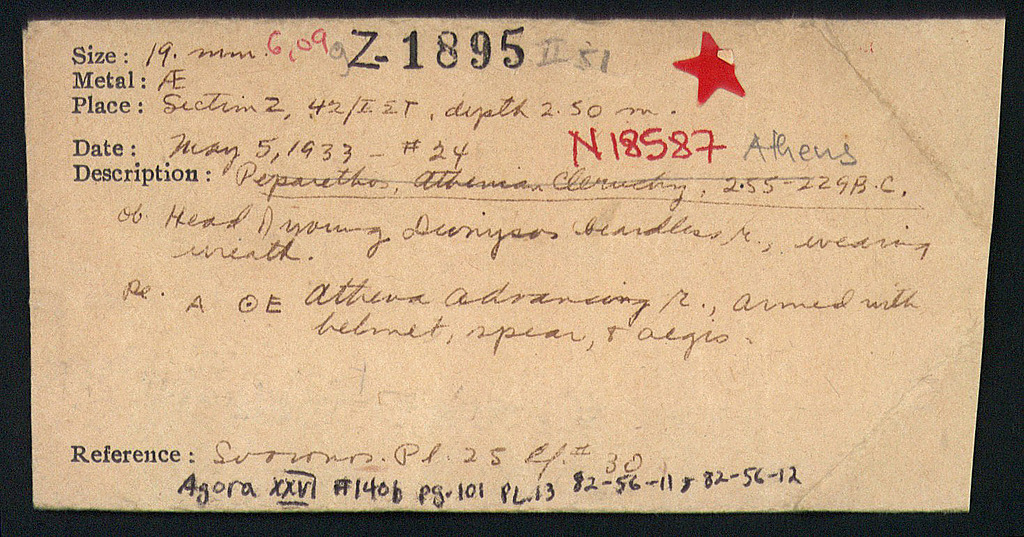 Size: 19. mm. 6,09g Z-1895 II 51
Metal: Æ
Place: Section Z, 42/ΙΣΤ, depth 2.50 m.
N18587 Athens
Date: May 5, 1933 - #24
Description: Peparethos, Athenian Cleruchy, 255-229 B.C.
ob. Head of young Dionysos beardless r., wearing
wreath.
Re. A ΘE Athena advancing r., armed with
helmet, spear, & aegis.
Reference: Svoronos. Pl. 25 cf. # 30
Agora XXVI #140b pg.101 PL.13 82-56-11 & 82-56-12